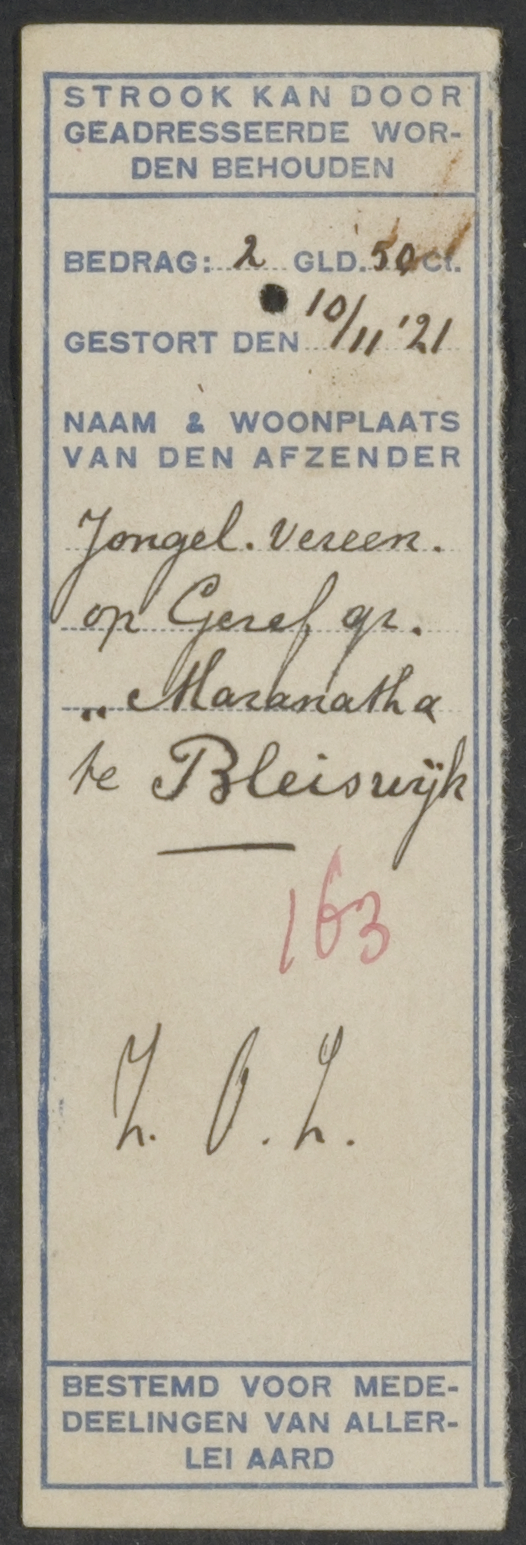 STROOK KAN DOOR
GEADRESSEERDE WOR-
DEN BEHOUDEN
BEDRAG: 2 GLD. 50 Ct.
GESTORT DEN 10/11 '21
NAAM & WOONPLAATS
VAN DEN AFZENDER
Jongel. Vereen.
op Geref gr.
„ Maranatha
te Bleiswijk
163
Z. O. Z.
BESTEMD VOOR MEDE-
DEELINGEN VAN ALLER-
LEI AARD